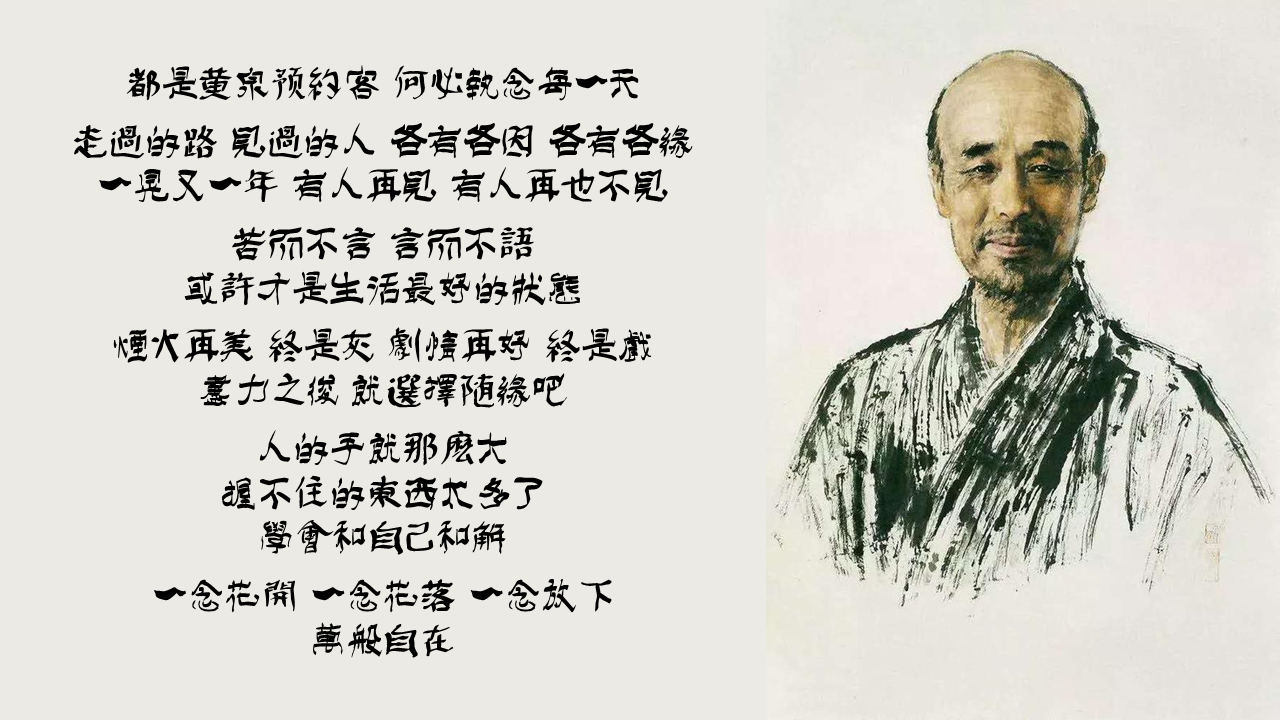 都是黄泉预約客 何必執念每一天
走過的路 見過的人 各有各因 各有各緣
一晃又一年 有人再見 有人再也不見
苦而不言 言而不語
或許才是生活最好的狀態
煙火再美 終是灰 劇情再好 終是戲
盡力之後 就選擇随緣吧
人的手就那麽大
握不住的東西太多了
學會和自己和解
一念花開 一念花落 一念放下
萬般自在